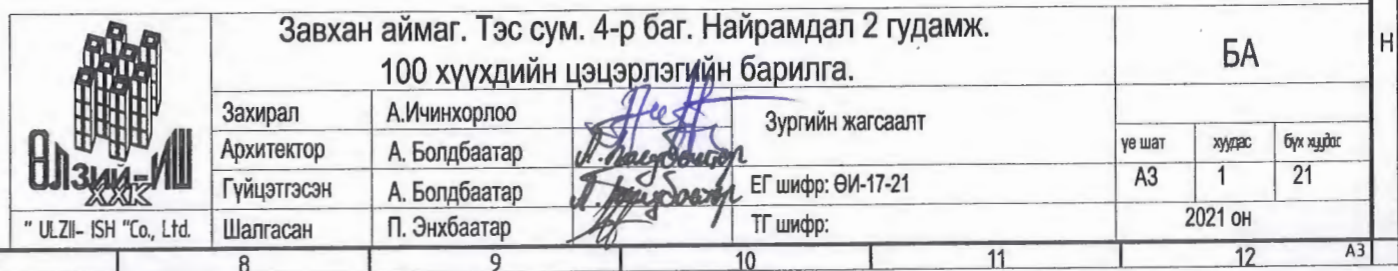 Завхан аймаг. Тэс сум. 4-р баг. Найрамдал 2 гудамж.
100 хүүхдийн цэцэрлэгийн барилга.
БА
Н
ӨЛЗИЙ-ИШ
ХХК
" ULZII- ISH "Co., Ltd.
Захирал А.Ичинхорлоо
Архитектор А. Болдбаатар
Гүйцэтгэсэн А. Болдбаатар
Шалгасан П. Энхбаатар
Зургийн жагсаалт
ЕГ шифр: ӨИ-17-21
ТГ шифр:
үе шат хуудас бүх хуудас
А3 1 21
2021 он
8 9 10 11 12 А3